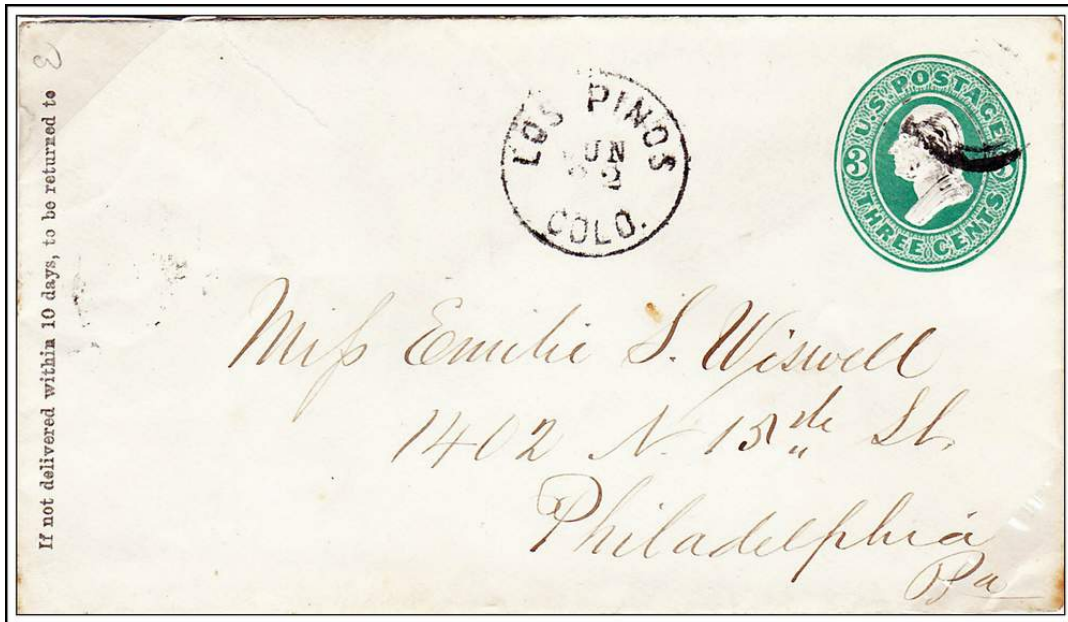 If not delivered within 10 days, to be returned to
3
LOS PINOS
JUN
COLO.
U.S. POSTAGE
3 3
THREE CENTS
Miss Emilie S. Wiswell
1402 N. 15th St.
Philadelphia
Pa